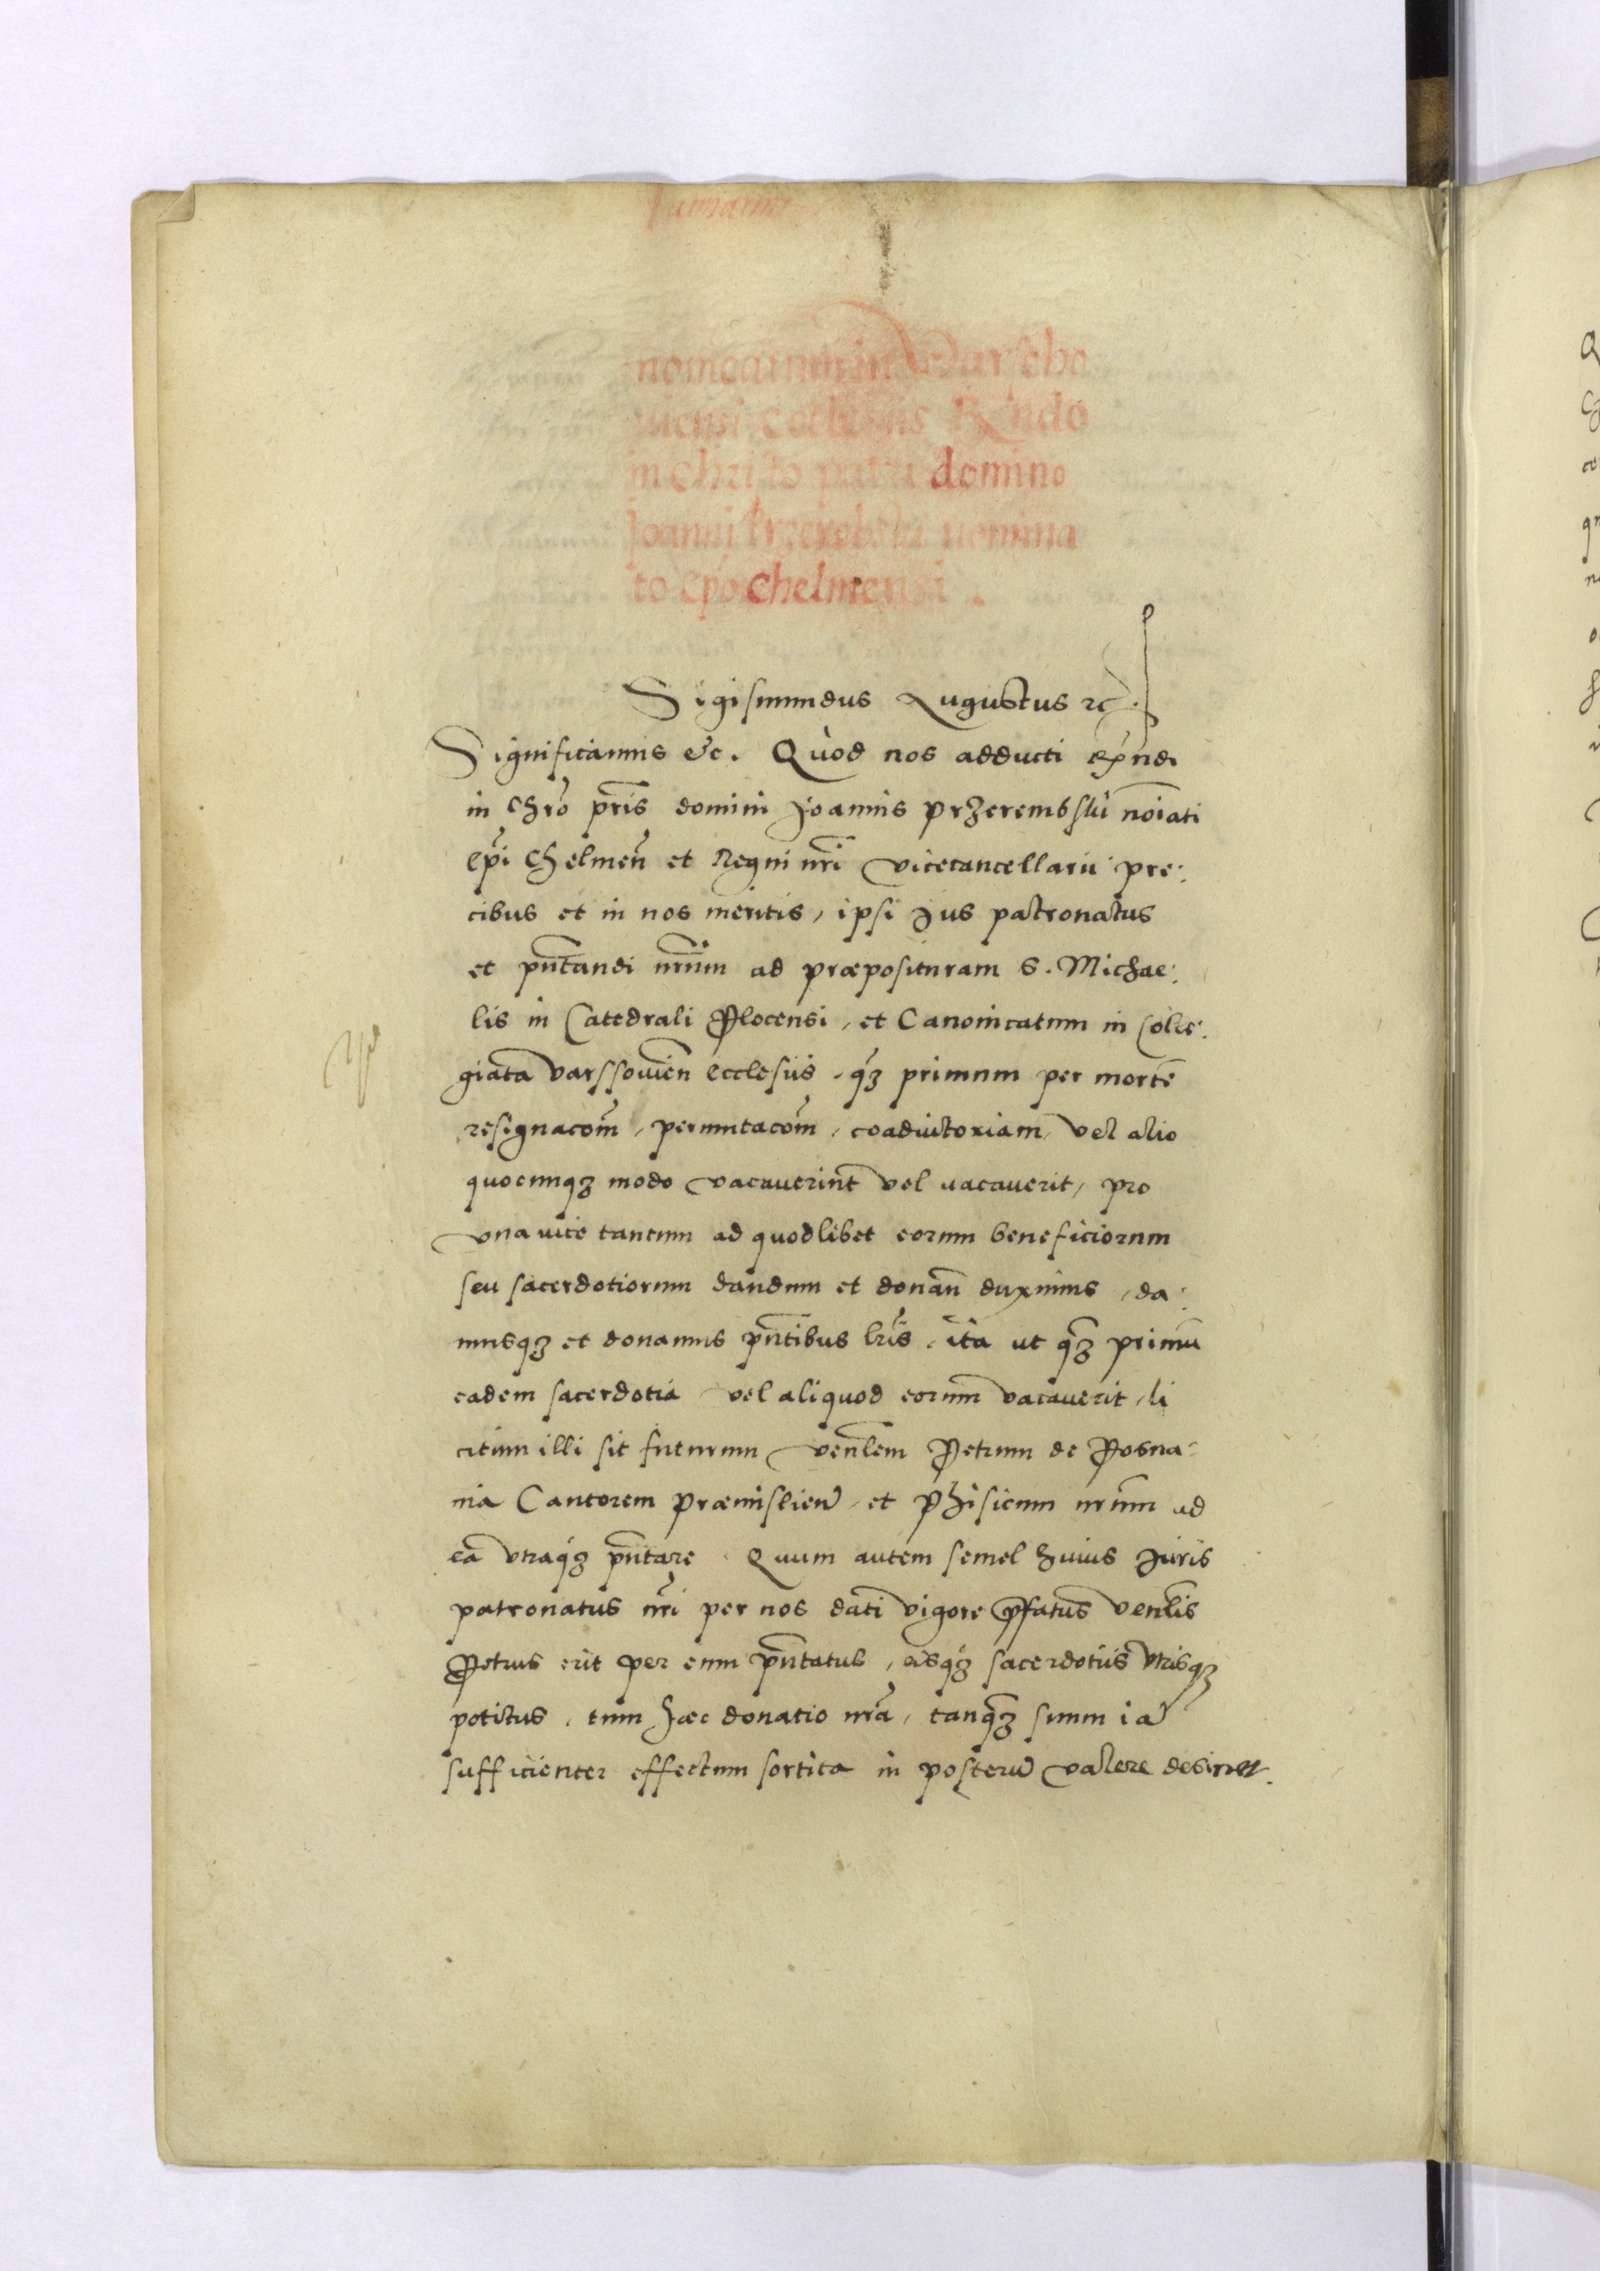 nonicatum in Varscho
uiensi ecclesiis Rndo
in Christo patri domino
Joanni Przerebski nomina
to Epo Chelmensi.
Sigismundus Augustus ꝛc.
Significamus &c. Quod nos adducti Rndi
in Chro pris domini Joannis Przerembski noiati
Epi Chelmen et Regni nri Vicecancellarii pre:
cibus et in nos meritis, ipsi Jus patronatus
et pntandi nrum ad præposituram S. Michae:
lis in Catedrali Plocensi, et Canonicatum in Colle:
giata Varssovien Ecclesiis, qꝫ primum per morte
resignacom, permutacom, coadiutoriam, vel alio
quocunqꝫ modo vacaverint vel vacaverit, pro
vna vice tantum ad quodlibet eorum beneficiorum
seu sacerdotiorum dandum et donan duximus, da:
musqꝫ et donamus pntibus lris, ita ut qꝫ primu
eadem sacerdotia vel aliquod eorum vacaverit, li
citum illi sit futurum Venlem Petrum de Posna:
nia Cantorem Præmislien, et Phisicum nrum ad
ea vtraqꝫ pntare. Quum autem semel huius Juris
patronatus nri per nos dati vigore pfatus Venlis
Petrus erit per eum pntatus, eisqꝫ sacerdotiis vtrisqꝫ
potitus, tum hæc donatio nra, tanqꝫ suum ia
sufficienter effectum sortita in posteru valere desinet.